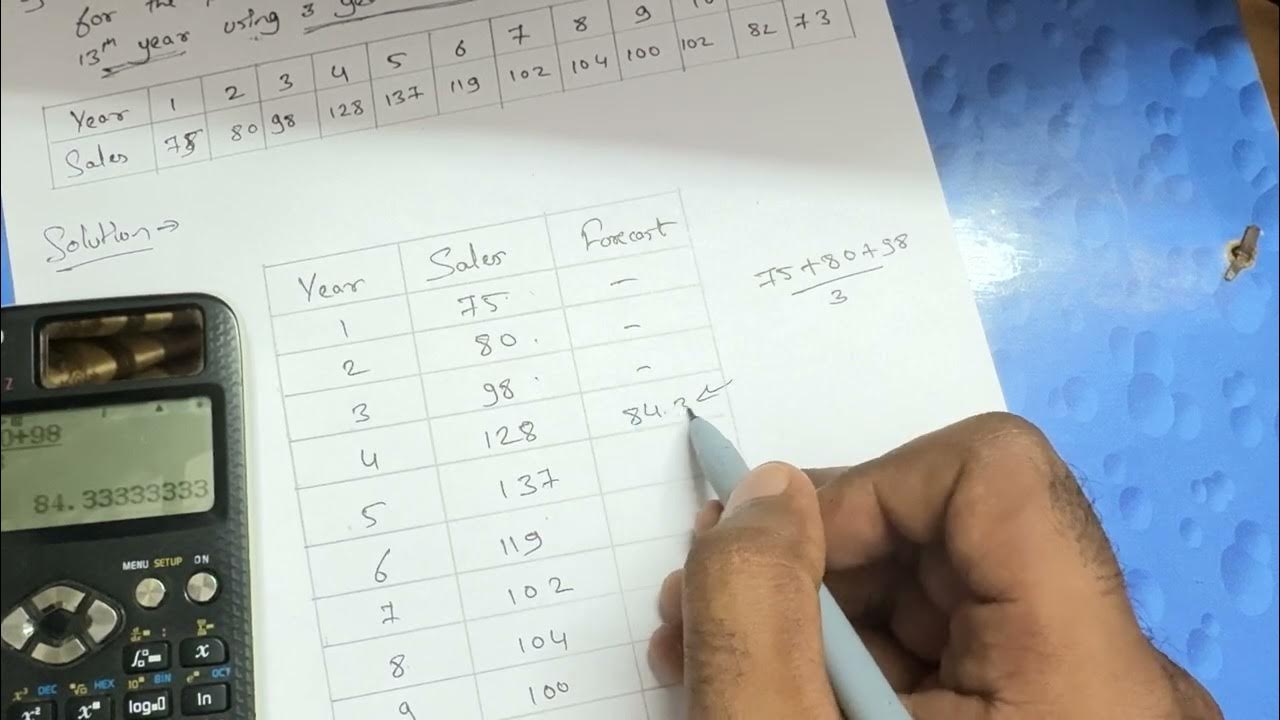 for the
13th year using 3
Year 1 2 3 4 5 6 7 8 9 10
Sales 75 80 98 128 137 119 102 104 100 102 82 73
Solution →
Year Sales Forecast
1 75 -
2 80 -
3 98 -
4 128 84.3
5 137
6 119
7 102
8 104
9 100
75+80+98
3
0+98
84.33333333
MENU SETUP ON
x
DEC HEX BIN OCT
log ln